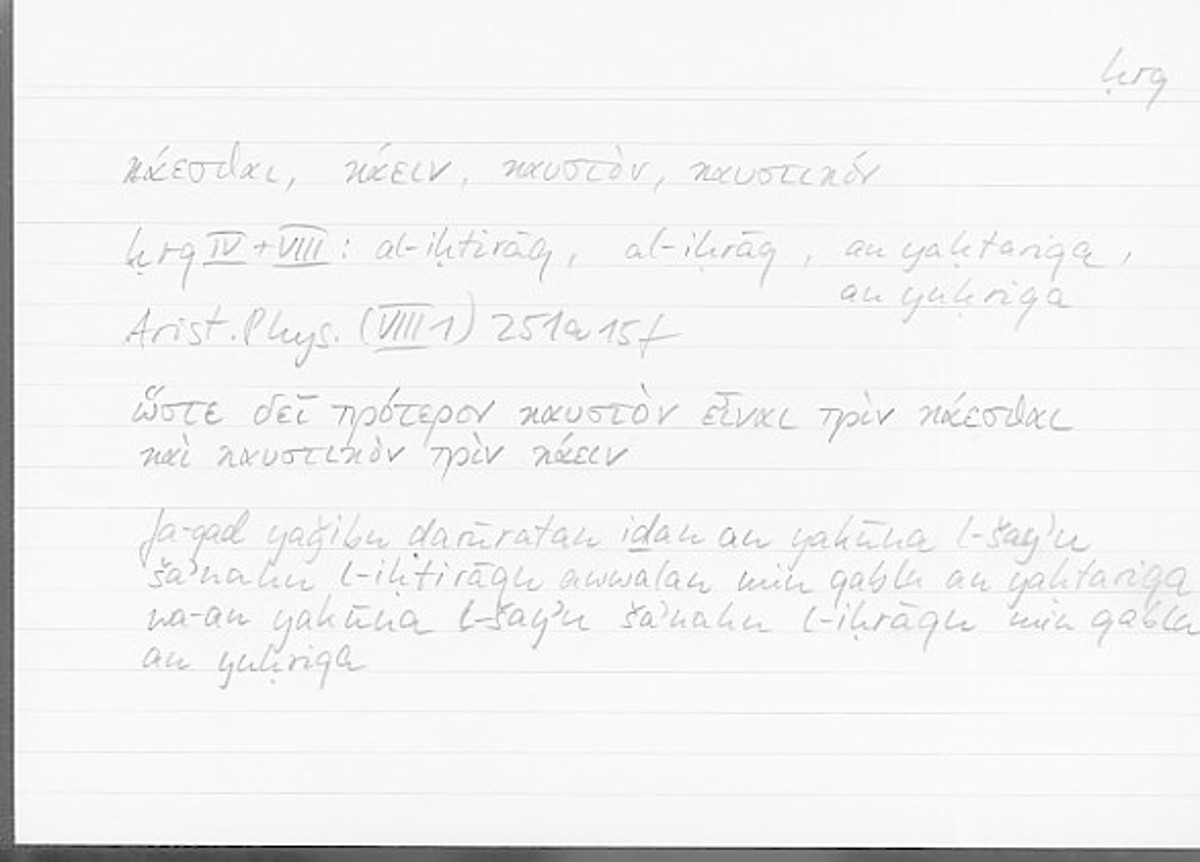 ḥrq
κάεσθαι, κάειν, καυστὸν, καυστικόν
ḥrq IV + VIII : al-iḥtirāq, al-iḥrāq, an yaḥtariqa,
an yuḥriqa
Arist. Phys. (VIII 1) 251a 15f
ὥστε δεῖ πρότερον καυστὸν εἶναι πρὶν κάεσθαι
καὶ καυστικὸν πρὶν κάειν
fa-qad yaǧibu ḍarūratan iḏan an yakūna l-šayʾu
šaʾnuhu l-iḥtirāqu awwalan min qablu an yaḥtariqa
wa-an yakūna l-šayʾu šaʾnuhu l-iḥrāqu min qablu
an yuḥriqa